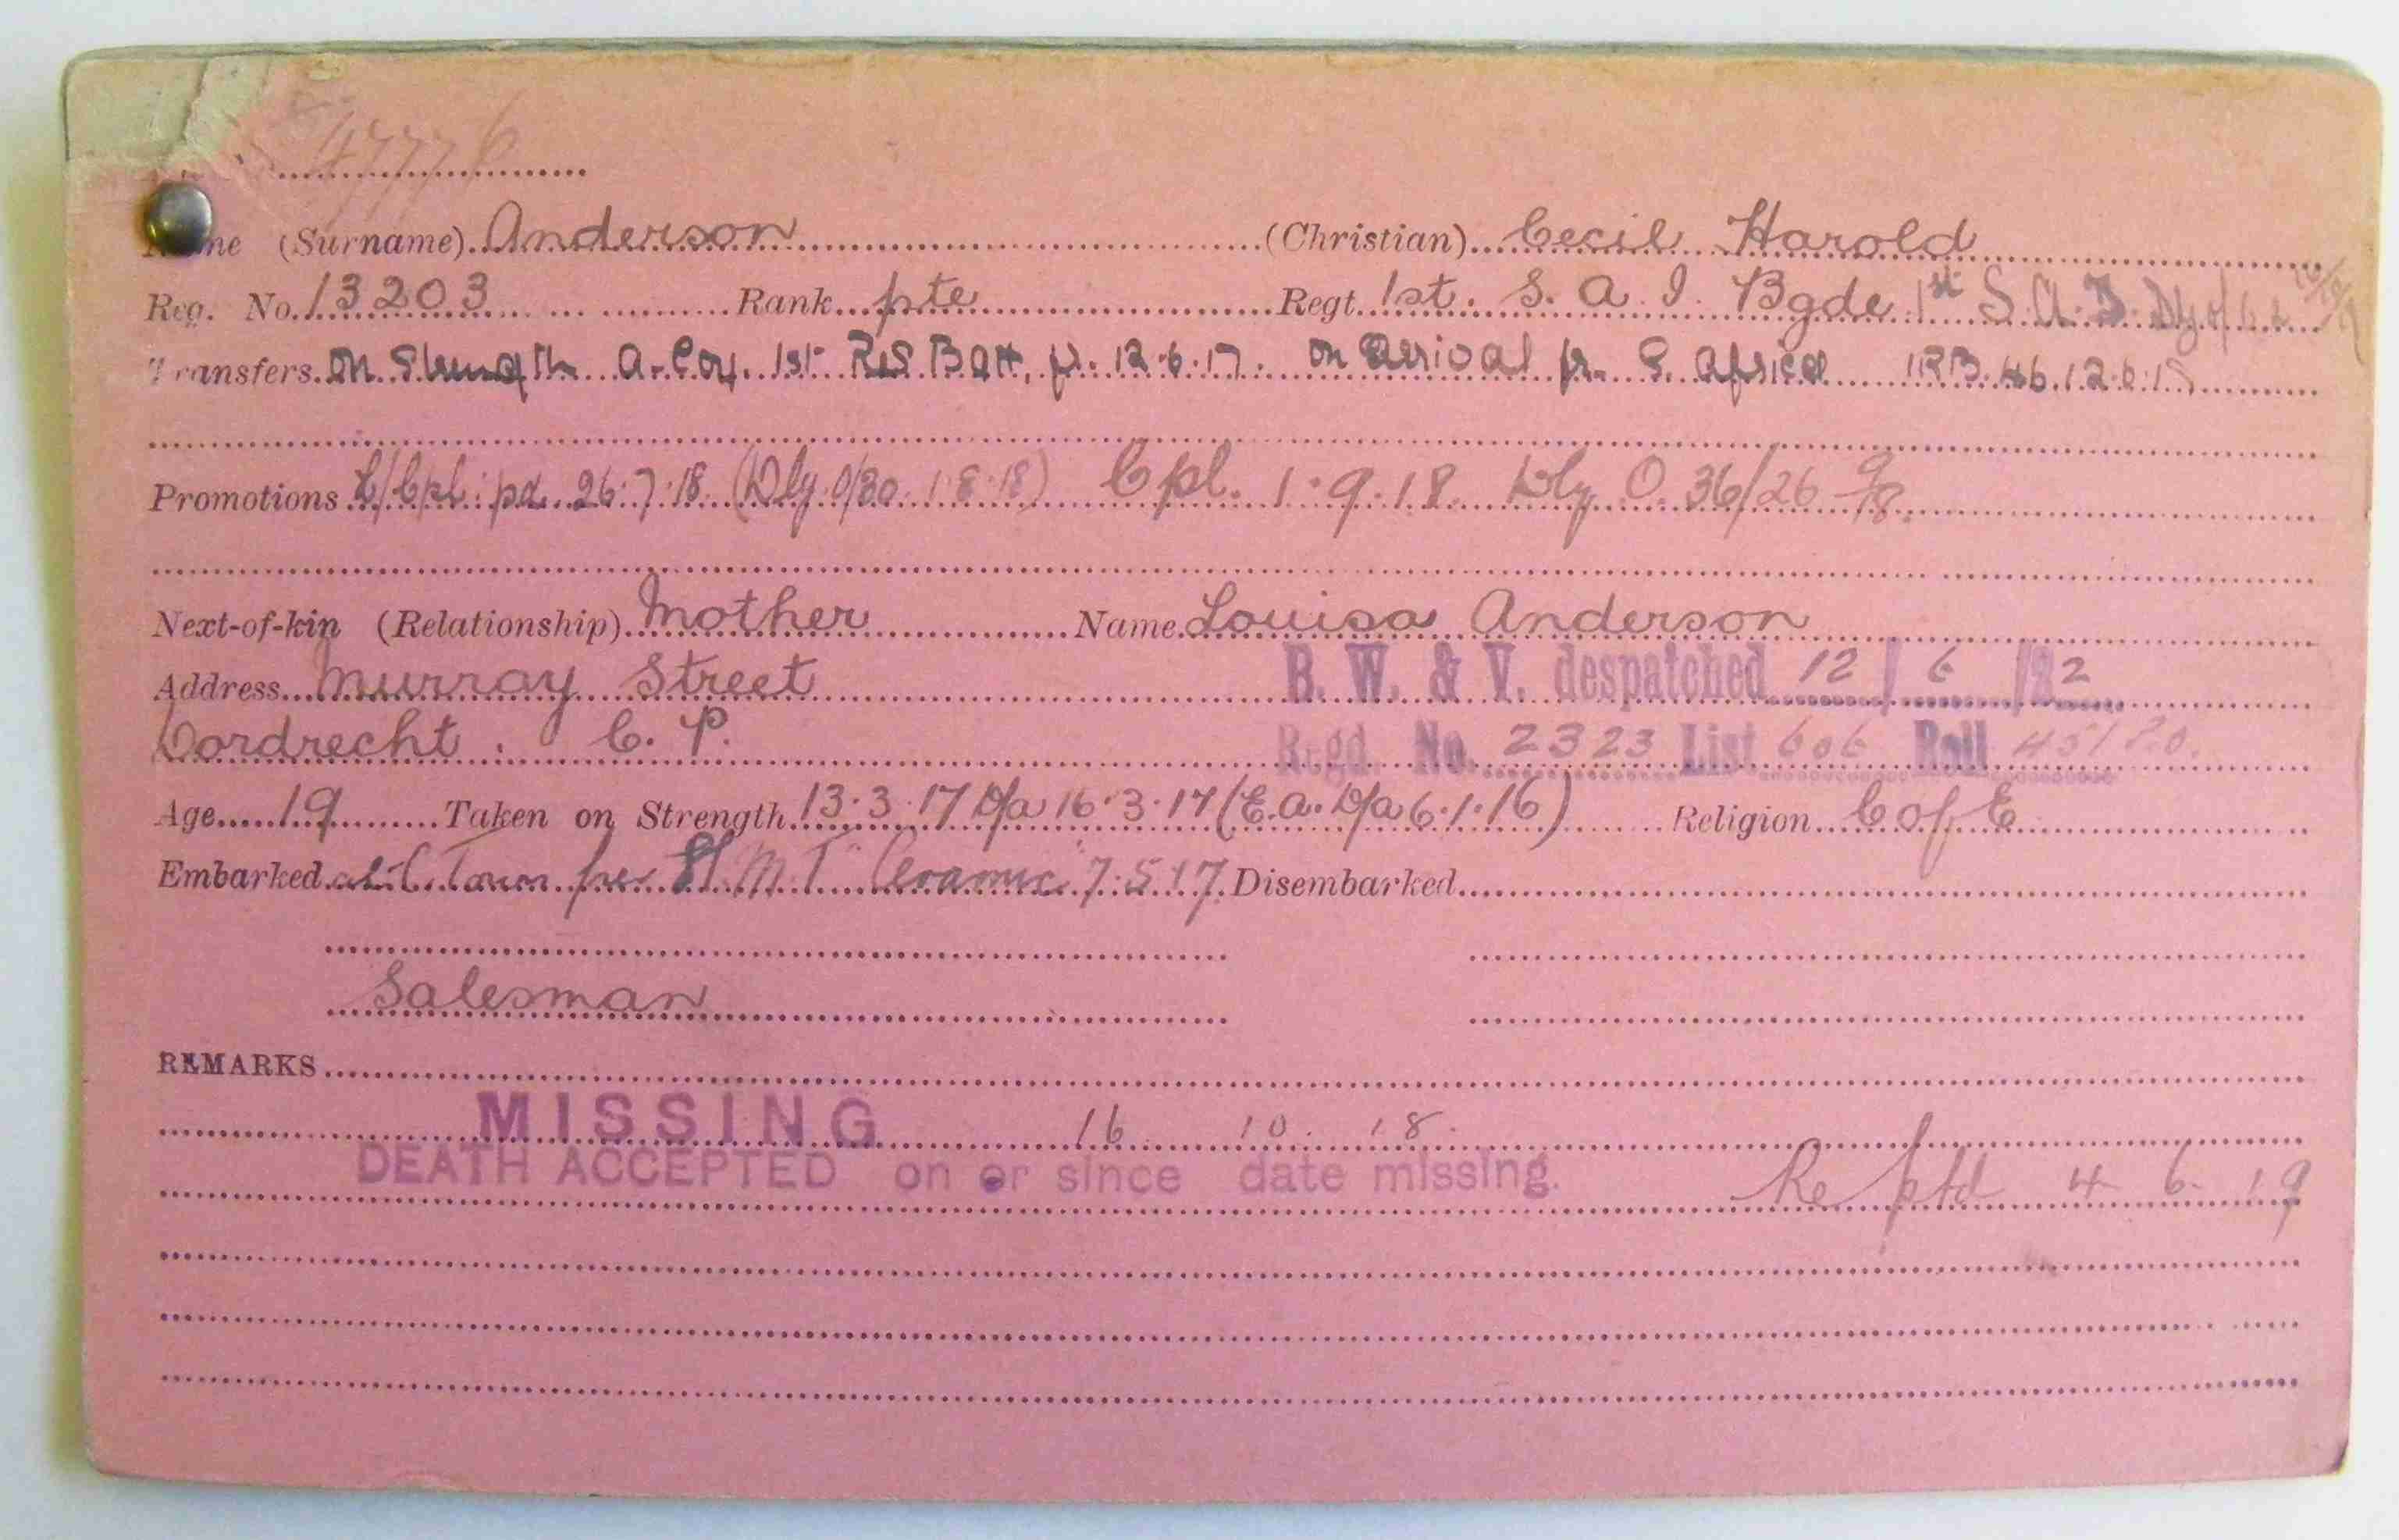 47776
Name (Surname) Anderson (Christian) Cecil Harold
Reg. No. 13203 Rank pte Regt. 1st. S. A. I. Bgde 1st S.A.I.
Transfers On Strength A. Coy. 1st Res Batt, fr. 12.6.17. on arrival fr. S. Africa 1RB 46.12.6.17
Promotions L/Cpl. pd. 26.7.18. (Dly O/30. 1.8.18) Cpl. 1.9.18. Dly O. 36/26 9/18.
Next-of-kin (Relationship) Mother Name Louisa Anderson
Address Murray Street B. W. & V. despatched 12 / 6 /22
Dordrecht. C. P. Regd. No. 2323 List 606 Roll
Age 19 Taken on Strength 13.3.17 D/a 16.3.17 (E.A. D/a 6.1.16) Religion C of E
Embarked at C. Town per H.M.T. "Ceramic" 7.5.17. Disembarked
Salesman
REMARKS
MISSING 16 . 10 . 18.
DEATH ACCEPTED on or since date missing. Re ptd 4 6. 19